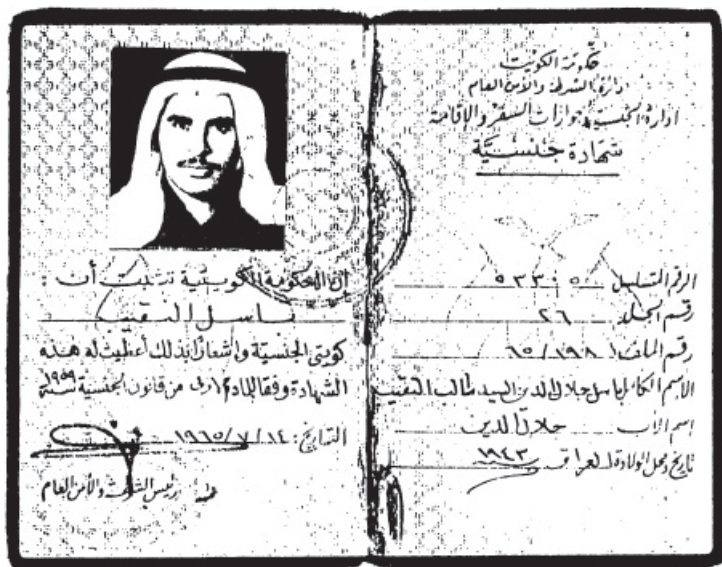 حكومة الكويت
ادارة الشرطة والأمن العام
ادارة الجنسية وجوازات السفر والإقامة
شهادة جنسية
الرقم التسلسل ٥٣٣٠٥٠
رقم الجلد ٢٦
رقم الملف ٦٥/١٩٨
الأسم الكامل باسل جلال الدين السيد طالب النقيب
إسم الأب جلال الدين
تاريخ ومحل الولادة العراق ١٩٤٣
إن الحكومة الكويتية تثبت أن :
باسل النقيب
كويتي الجنسية واشعارًا بذلك أعطيت له هذه
الشهادة وفقا للمادة من قانون الجنسية لسنة ١٩٥٩
التاريخ : ١٤ / ٧ / ١٩٦٥
رئيس الشرطة والأمن العام